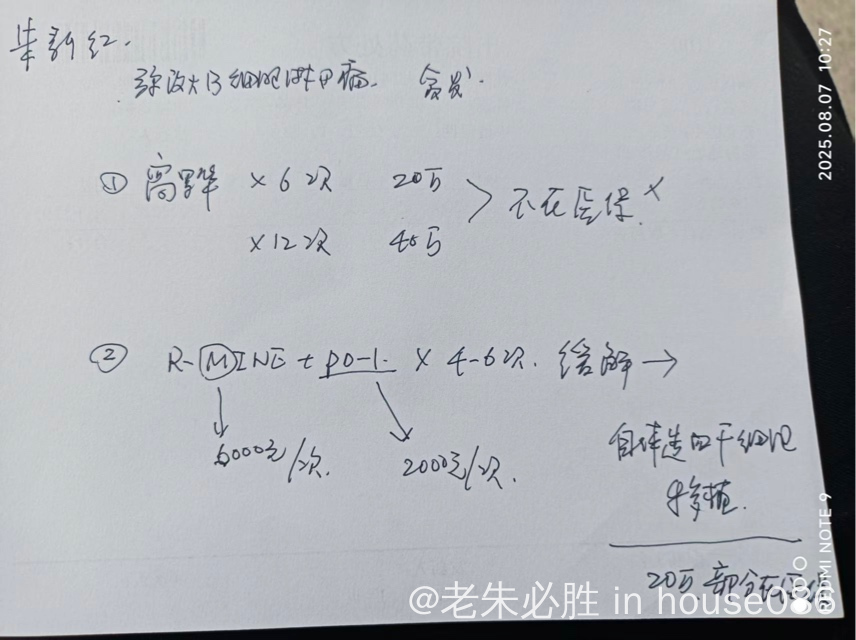 弥漫大B细胞淋巴瘤. 复发.
① 高罗华 ×6次 20万 > 不在医保. ×
×12次 40万
② R-MINE + PD-1. × 4-6次. 缓解 →
6000元/次. 2000元/次.
自体造血干细胞
移植.
20万. 部分在医保
2025.08.07 10:27
REDMI NOTE 9
@老朱必胜 in house086